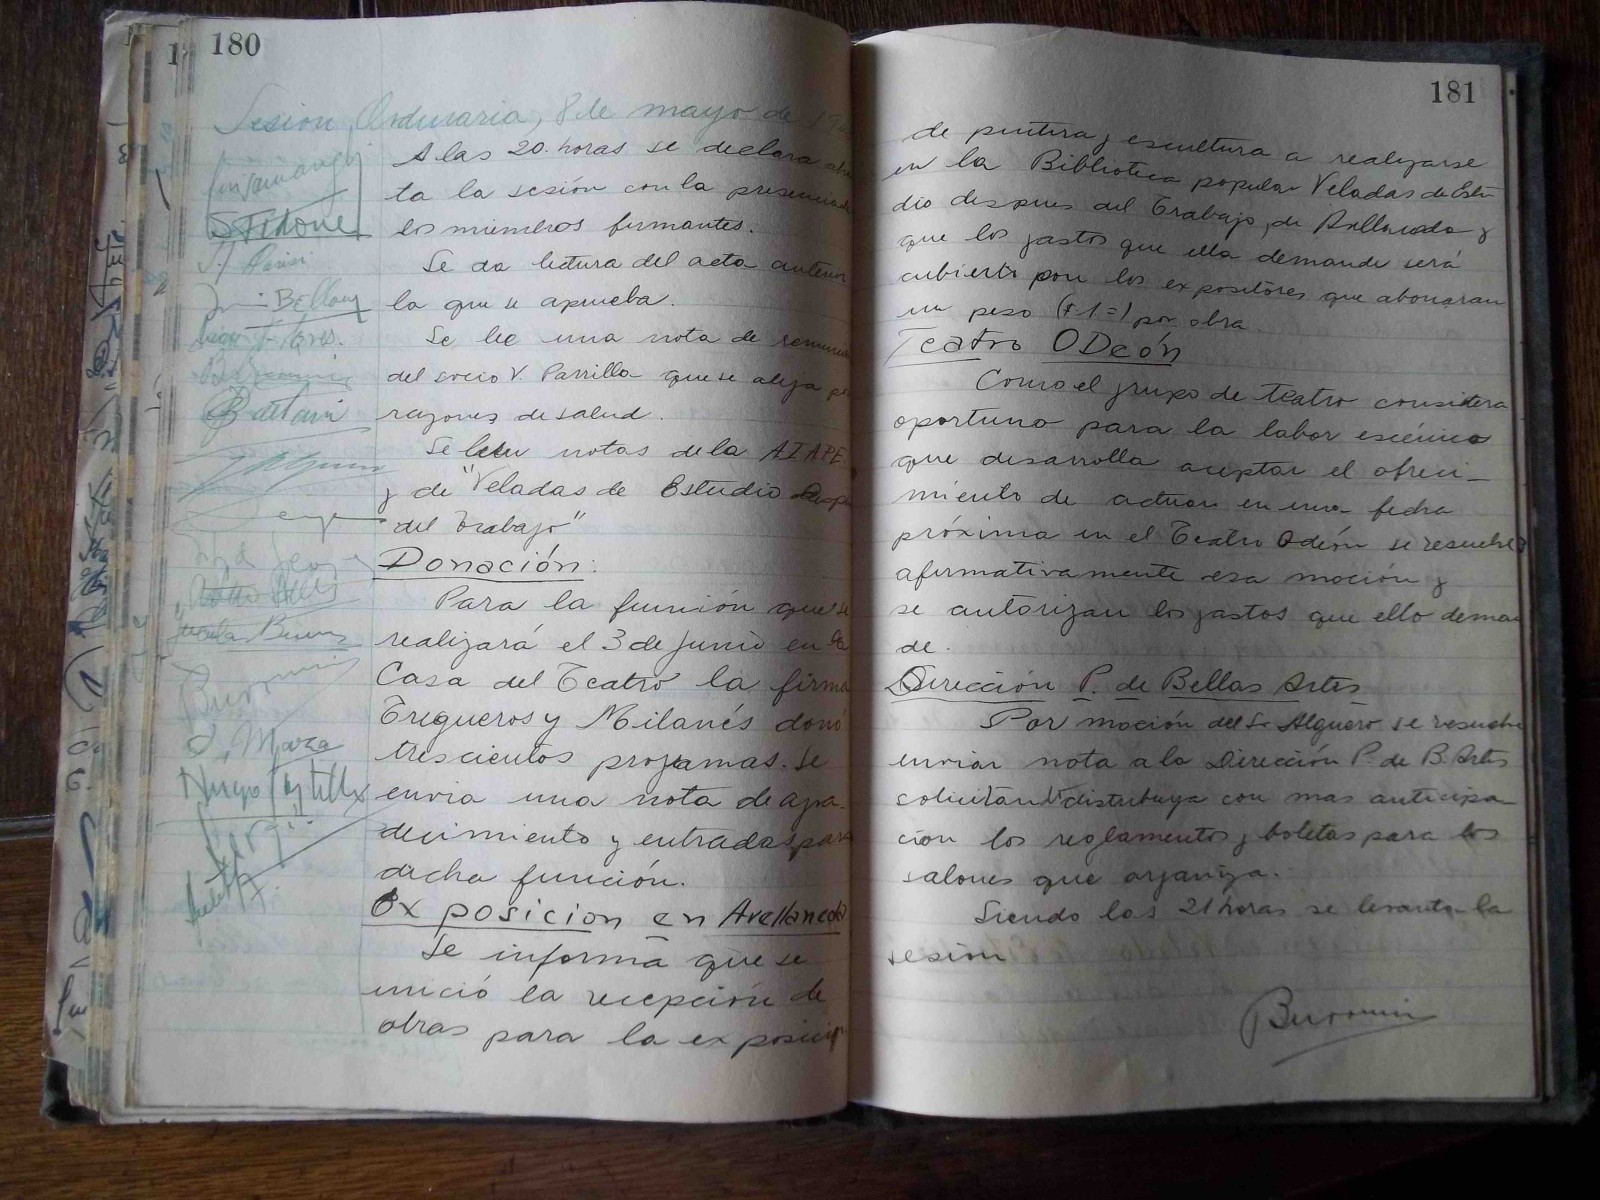 180
Sesion Ordinaria, 8 de mayo de
A las 20 horas se declara abier
ta la sesión con la presencia de
los miembros firmantes.
Se da lectura del acta anterior
la que se aprueba.
Se lee una nota de renuncia
del socio V. Parrilla que se aleja por
razones de salud.
Se leen notas de la AIAPE
y de "Veladas de Estudio Despues
del Trabajo"
Donación:
Para la función que se
realizará el 3 de junio en la
Casa del Teatro la firma
Trigueros y Milanés donó
trescientos programas. Se
envia una nota de agra-
decimiento y entradas para
dicha función.
Exposicion en Avellaneda
Se informa que se
inició la recepción de
obras para la exposición
S. Fihone
Bellour
Battani
Burromini
J. Marza
181
de pintura y escultura a realizarse
en la Biblioteca popular Veladas de Estu
dio despues del Trabajo, de Avellaneda y
que los gastos que ella demande será
cubierto por los expositores que abonaran
un peso ($ 1=) por obra
Teatro ODeón
Como el grupo de teatro considera
oportuno para la labor escénica
que desarrolla aceptar el ofreci-
miento de actuar en una fecha
próxima en el Teatro Odeón se resuelve
afirmativamente esa moción y
se autorizan los gastos que ello deman
de.
Dirección P. de Bellas Artes
Por moción del Sr Alguero se resuelve
enviar nota a la Dirección P. de B. Artes
solicitando distribuya con mas anticipa-
ción los reglamentos y boletas para los
salones que organiza.
Siendo las 21 horas se levanta la
sesion
Burromini